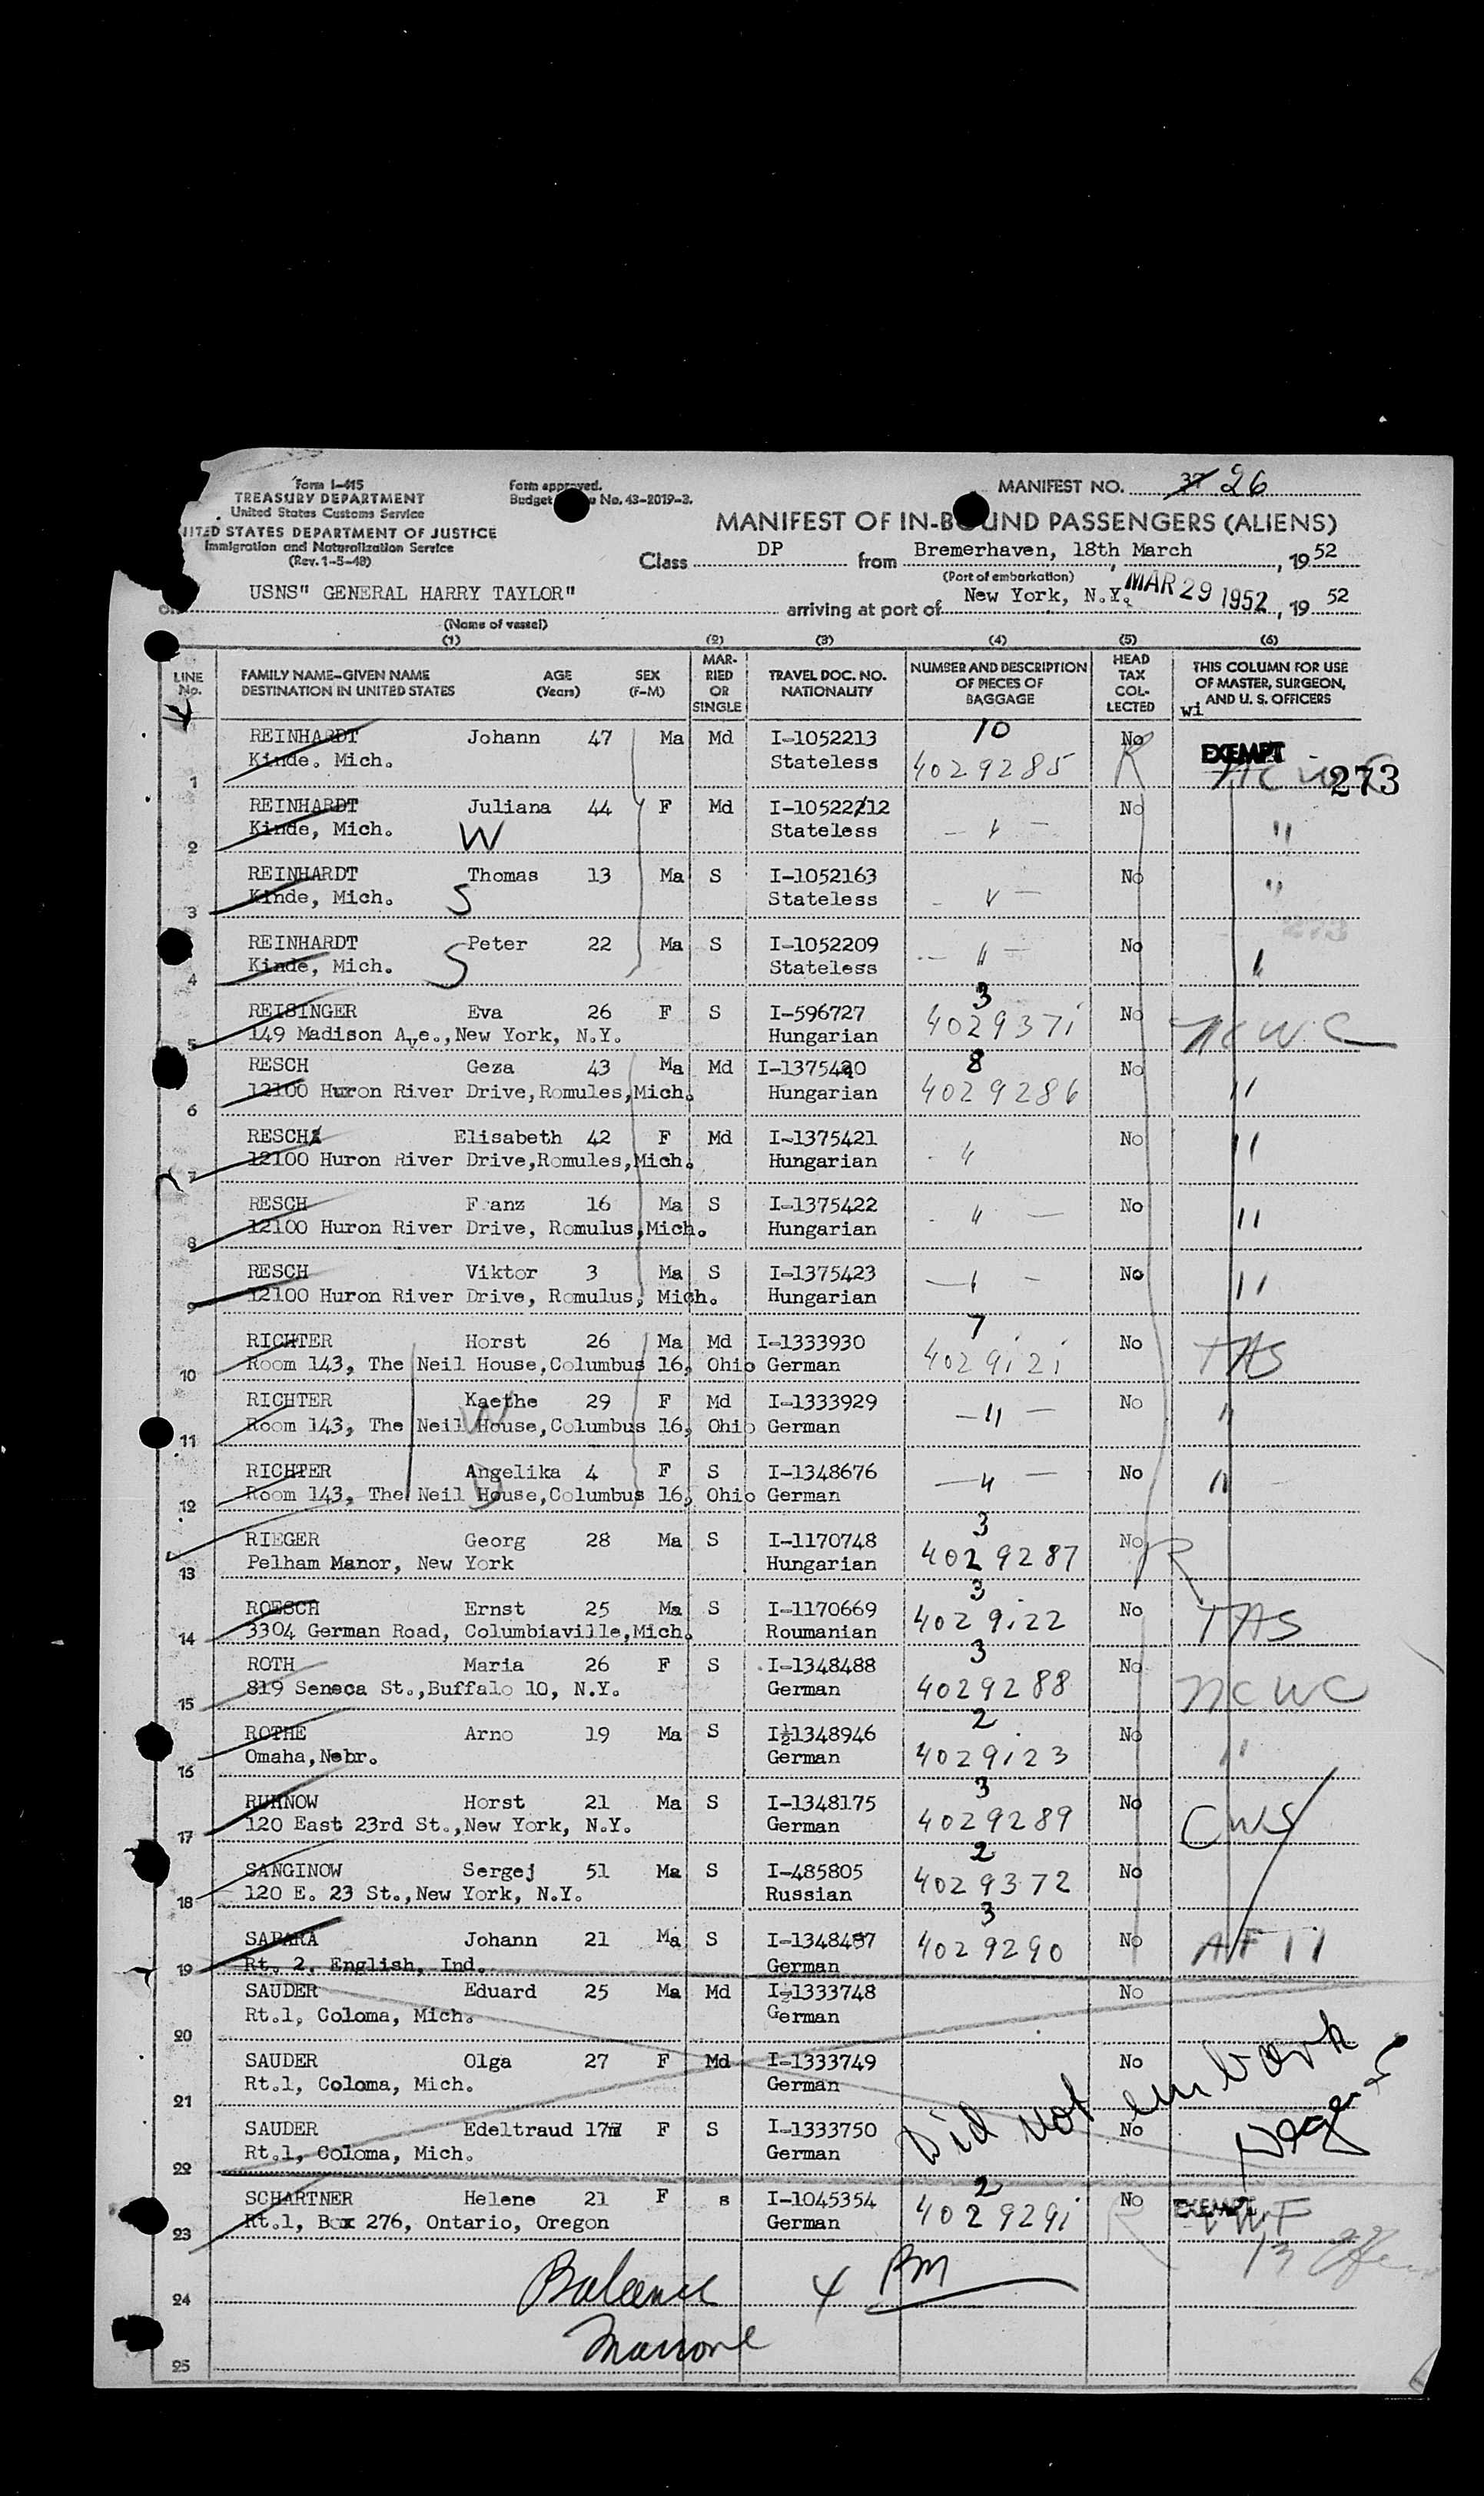 Form I-415
TREASURY DEPARTMENT
United States Customs Service
UNITED STATES DEPARTMENT OF JUSTICE
Immigration and Naturalization Service
(Rev. 1-5-49)
Form approved.
Budget No. 43-2019-3.
MANIFEST NO. 37 26
MANIFEST OF IN-BOUND PASSENGERS (ALIENS)
Class DP from Bremerhaven, 18th March, 19 52
(Port of embarkation)
on USNS" GENERAL HARRY TAYLOR" arriving at port of New York, N.Y. MAR 29 1952, 19 52
(Name of vessel)
(1) (2) (3) (4) (5) (6)
LINE No. FAMILY NAME-GIVEN NAME DESTINATION IN UNITED STATES AGE (Years) SEX (F-M) MARRIED OR SINGLE TRAVEL DOC. NO. NATIONALITY NUMBER AND DESCRIPTION OF PIECES OF BAGGAGE HEAD TAX COLLECTED THIS COLUMN FOR USE OF MASTER, SURGEON, AND U. S. OFFICERS
wi
REINHARDT Johann 47 Ma Md I-1052213 10 No EXEMPT
1 Kinde. Mich. Stateless 4029285 R NCWC 273
REINHARDT Juliana 44 F Md I-10522212 No
2 Kinde, Mich. W Stateless " "
REINHARDT Thomas 13 Ma S I-1052163 No
3 Kinde, Mich. S Stateless " "
REINHARDT Peter 22 Ma S I-1052209 No
4 Kinde, Mich. S Stateless " "
REISINGER Eva 26 F S I-596727 3 No
5 149 Madison Ave., New York, N.Y. Hungarian 4029371 NCWC
RESCH Geza 43 Ma Md I-1375420 8 No
6 12100 Huron River Drive, Romules, Mich. Hungarian 4029286 "
RESCH Elisabeth 42 F Md I-1375421 No
7 12100 Huron River Drive, Romules, Mich. Hungarian " "
RESCH Franz 16 Ma S I-1375422 No
8 12100 Huron River Drive, Romulus, Mich. Hungarian " "
RESCH Viktor 3 Ma S I-1375423 No
9 12100 Huron River Drive, Romulus, Mich. Hungarian " "
RICHTER Horst 26 Ma Md I-1333930 7 No
10 Room 143, The Neil House, Columbus 16, Ohio German 4029121 TAS
RICHTER Kaethe 29 F Md I-1333929 No
11 Room 143, The Neil House, Columbus 16, Ohio W German " "
RICHTER Angelika 4 F S I-1348676 No
12 Room 143, The Neil House, Columbus 16, Ohio D German " "
RIEGER Georg 28 Ma S I-1170748 3 No
13 Pelham Manor, New York Hungarian 4029287 R
ROESCH Ernst 25 Ma S I-1170669 3 No
14 3304 German Road, Columbiaville, Mich. Roumanian 4029122 TAS
ROTH Maria 26 F S I-1348488 3 No
15 819 Seneca St., Buffalo 10, N.Y. German 4029288 NCWC
ROTHE Arno 19 Ma S I½1348946 2 No
16 Omaha, Nebr. German 4029123 "
RUHNOW Horst 21 Ma S I-1348175 3 No
17 120 East 23rd St., New York, N.Y. German 4029289 CWS
SANGINOW Sergej 51 Ma S I-485805 2 No
18 120 E. 23 St., New York, N.Y. Russian 4029372
SAPARA Johann 21 Ma S I-1348487 3 No
19 Rt. 2, English, Ind. German 4029290
SAUDER Eduard 25 Ma Md I½1333748 No
20 Rt.1, Coloma, Mich. German
SAUDER Olga 27 F Md I-1333749 No
21 Rt.1, Coloma, Mich. German
Did not embark
SAUDER Edeltraud 17 F S I-1333750 No
22 Rt.1, Coloma, Mich. German
SCHARTNER Helene 21 F s I-1045354 2 No EXEMPT
23 Rt.1, Box 276, Ontario, Oregon German 4029291 R
24 Balance 4 PM
25